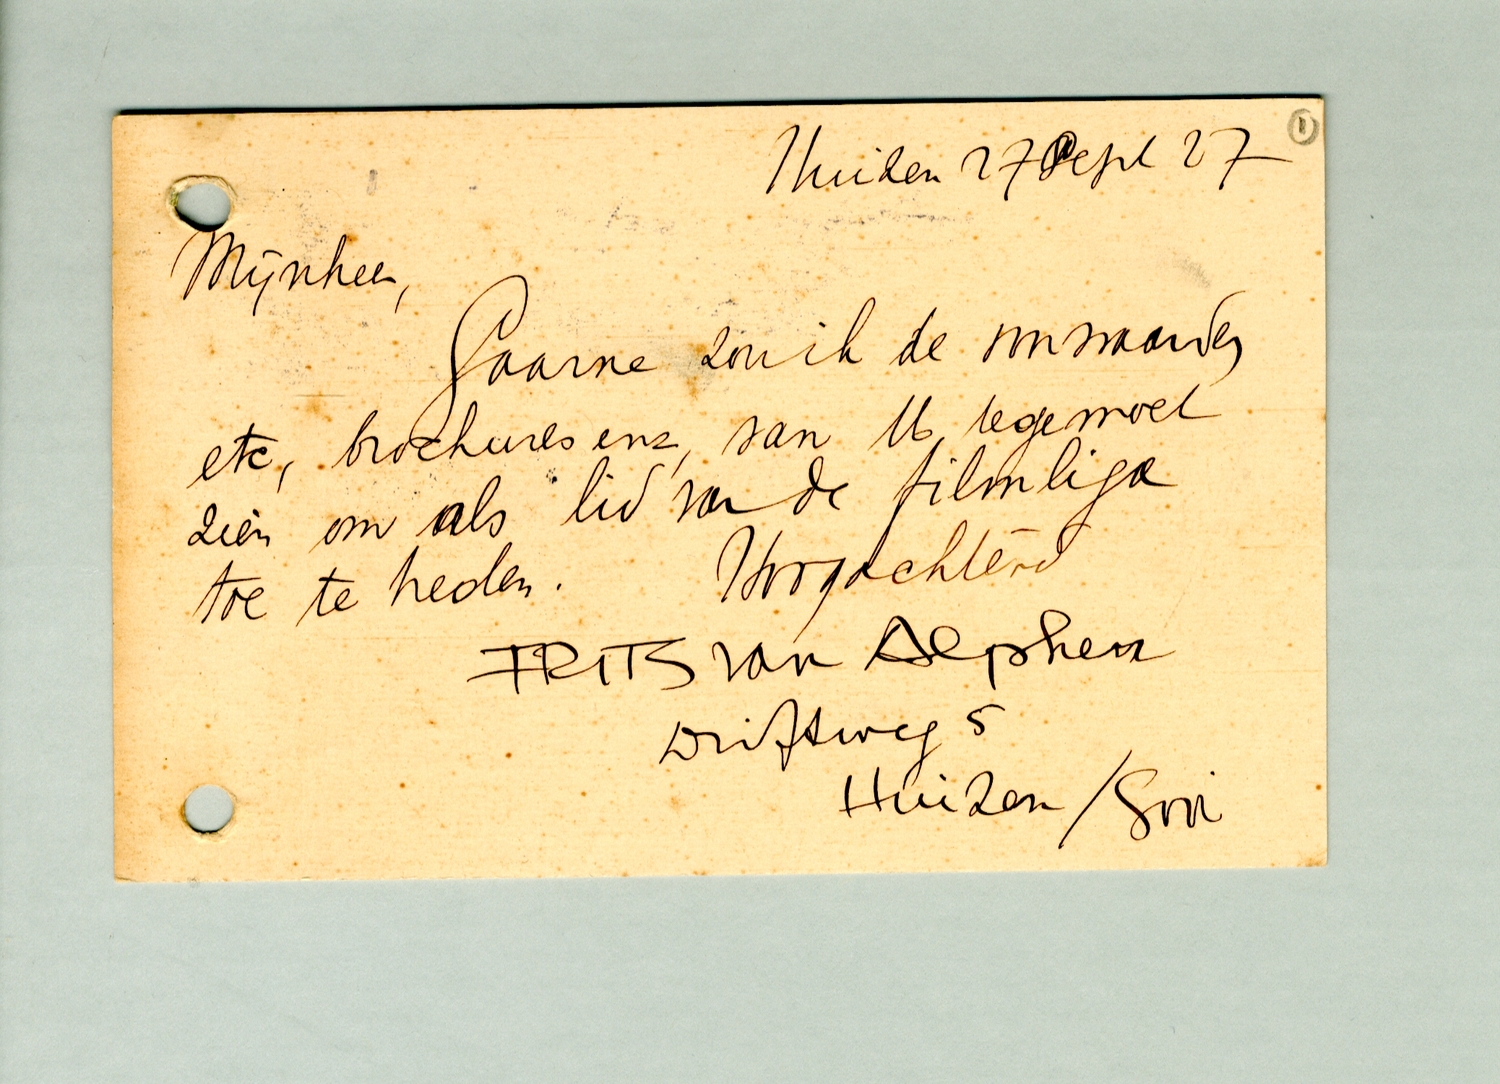 Huizen 27 Sept 27
Mijnheer,
Gaarne zou ik de voorwaarden
etc, brochures enz, van U tegemoet
zien om als lid van de filmliga
toe te treden. Hoogachtend
FRITS van Alphen
Driftweg 5
Huizen / Gooi
1